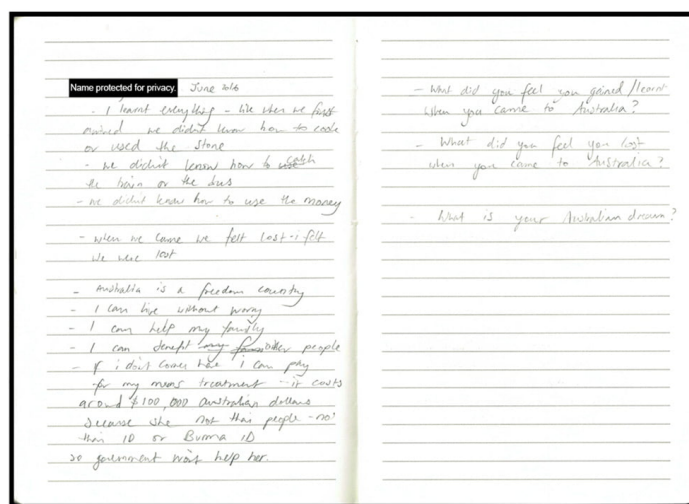 Name protected for privacy. June 2016
- I learnt everything - like when we first
arrived we didn't know how to cook
or used the stone
- we didn't know how to catch
the train or the bus
- we didn't know how to use the money
- when we came we felt lost - i felt
we were lost
- Australia is a freedom country
- I can live without worry
- I can help my family
- I can benefit my other people
- if i don't comes here i can pay
for my mums treatment - it costs
around $100,000 Australian dollars
because she not thai people - no
thai ID or Burma ID
so government won't help her.
- What did you feel you gained/learnt
when you came to Australia?
- What did you feel you lost
when you came to Australia?
- What is your Australian dream?